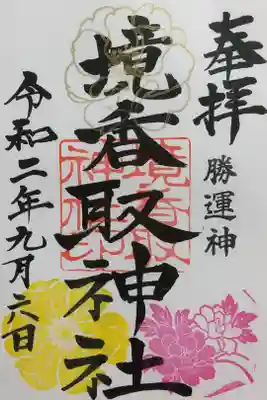 奉拝
勝運神
境香取神社
令和二年九月六日